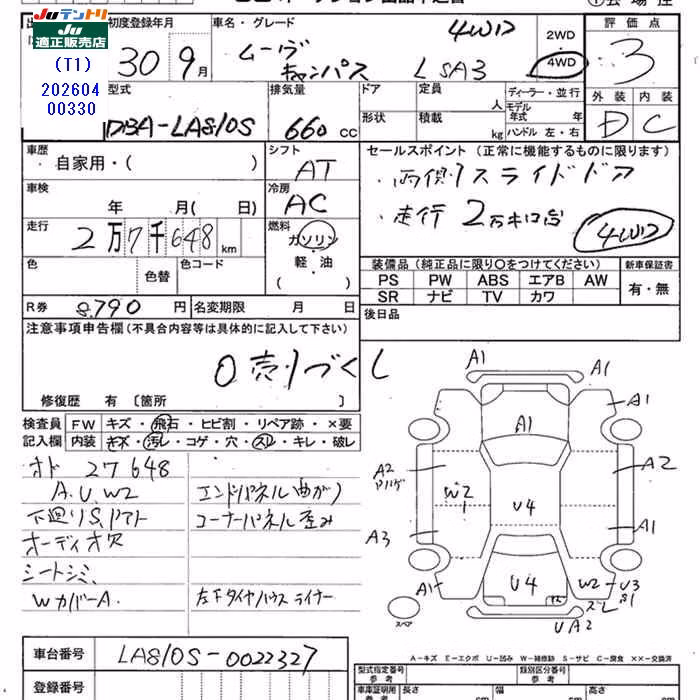 Juテントリ
JU適正販売店
(T1)
202604
00330
初度登録年月
30 9月
車名・グレード
ムーヴ キャンバス L SA3
4WD
2WD
4WD
評価点
3
外装 内装
D C
型式
DBA-LA810S
排気量
660 cc
ドア
形状
定員 人
積載 kg
ディーラー・並行
モデル年式 年式
ハンドル 左・右
車歴
自家用・( )
シフト
AT
車検
年 月(日)
冷房
AC
走行
2万7千648km
燃料
ガソリン
軽・油
( )
色
色替
色コード
R券
8,790 円
名変期限 月 日
セールスポイント(正常に機能するものに限ります)
・両側スライドドア
・走行2万キロ台
4WD
装備品(純正品に限り○をつけてください)
新車保証書
PS PW ABS エアB AW
SR ナビ TV カワ
有・無
後日品
注意事項申告欄(不具合内容等は具体的に記入して下さい)
0売りづくし
修復歴 有〔箇所 〕
検査員記入欄
FW キズ・飛石・ヒビ割・リペア跡・×要
内装 キズ・汚レ・コゲ・穴・スレ・キレ・破レ
オド 27648
A.U.W2
エンドパネル曲がり
下廻りS,アト
コーナーパネル歪み
オーディオ欠
シートシミ
WカバーA.
左下タイヤハウスライナー
A1
A1
A1
A1
A2
W2
U4
A2
A3
A1
A1
U4
W2
U3
S1
ズレ
UA2
スペア
A-キズ E-エクボ U-凹み W-補修跡 S-サビ C-腐食 ××-交換済
車台番号
LA810S-0022327
登録番号
型式指定番号 参考
類別区分番号 参考
車庫証明用 参考
長さ cm
幅 cm
高さ cm